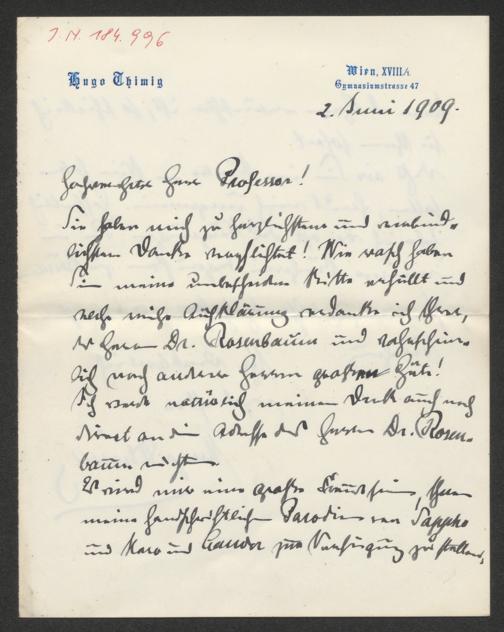 J. N. 184.996
Hugo Thimig
Wien, XVIII/1.
Gymnasiumstrasse 47
2. Juni 1909.
Hochverehrter Herr Professor!
Sie haben mich zu herzlichstem und verbind-
lichsten Danke verpflichtet! Wie rasch haben
Sie meine unbescheidene Bitte erfüllt und
welche Aufklärung verdanke ich Ihnen,
Herrn Dr. Rosenbaum und wahrschein-
lich noch anderen Herren großer Güte!
Ich werde natürlich meinen Dank auch noch
direct an die Adresse des Herrn Dr. Rosen-
baum richten.
Es wird mir eine große Freude sein, Ihnen
meine handschriftlichen Parodien von Sappho
und Hero und Leander zur Verfügung zu stellen,